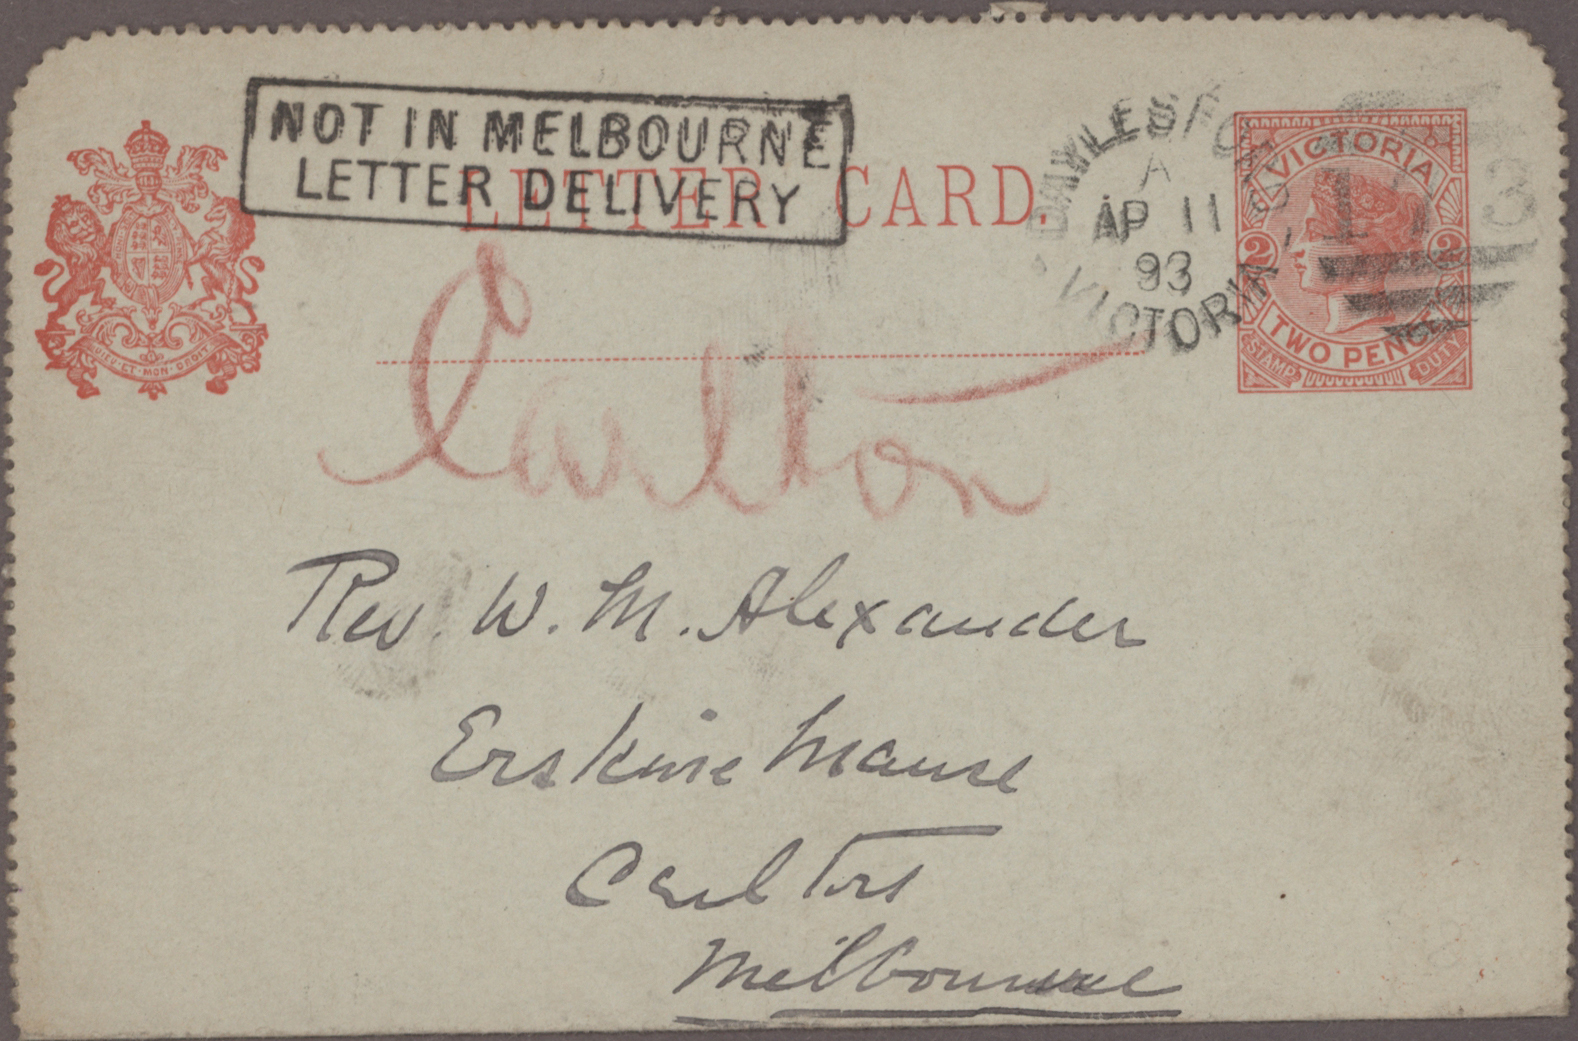 NOT IN MELBOURNE
LETTER DELIVERY
LETTER CARD.
DAYLESFORD
A
AP 11
93
VICTORIA
VICTORIA
2 2
TWO PENCE
STAMP DUTY
DIEU·ET·MON·DROIT
Carlton
Rev. W. M. Alexander
Erskine Manse
Carlton
Melbourne